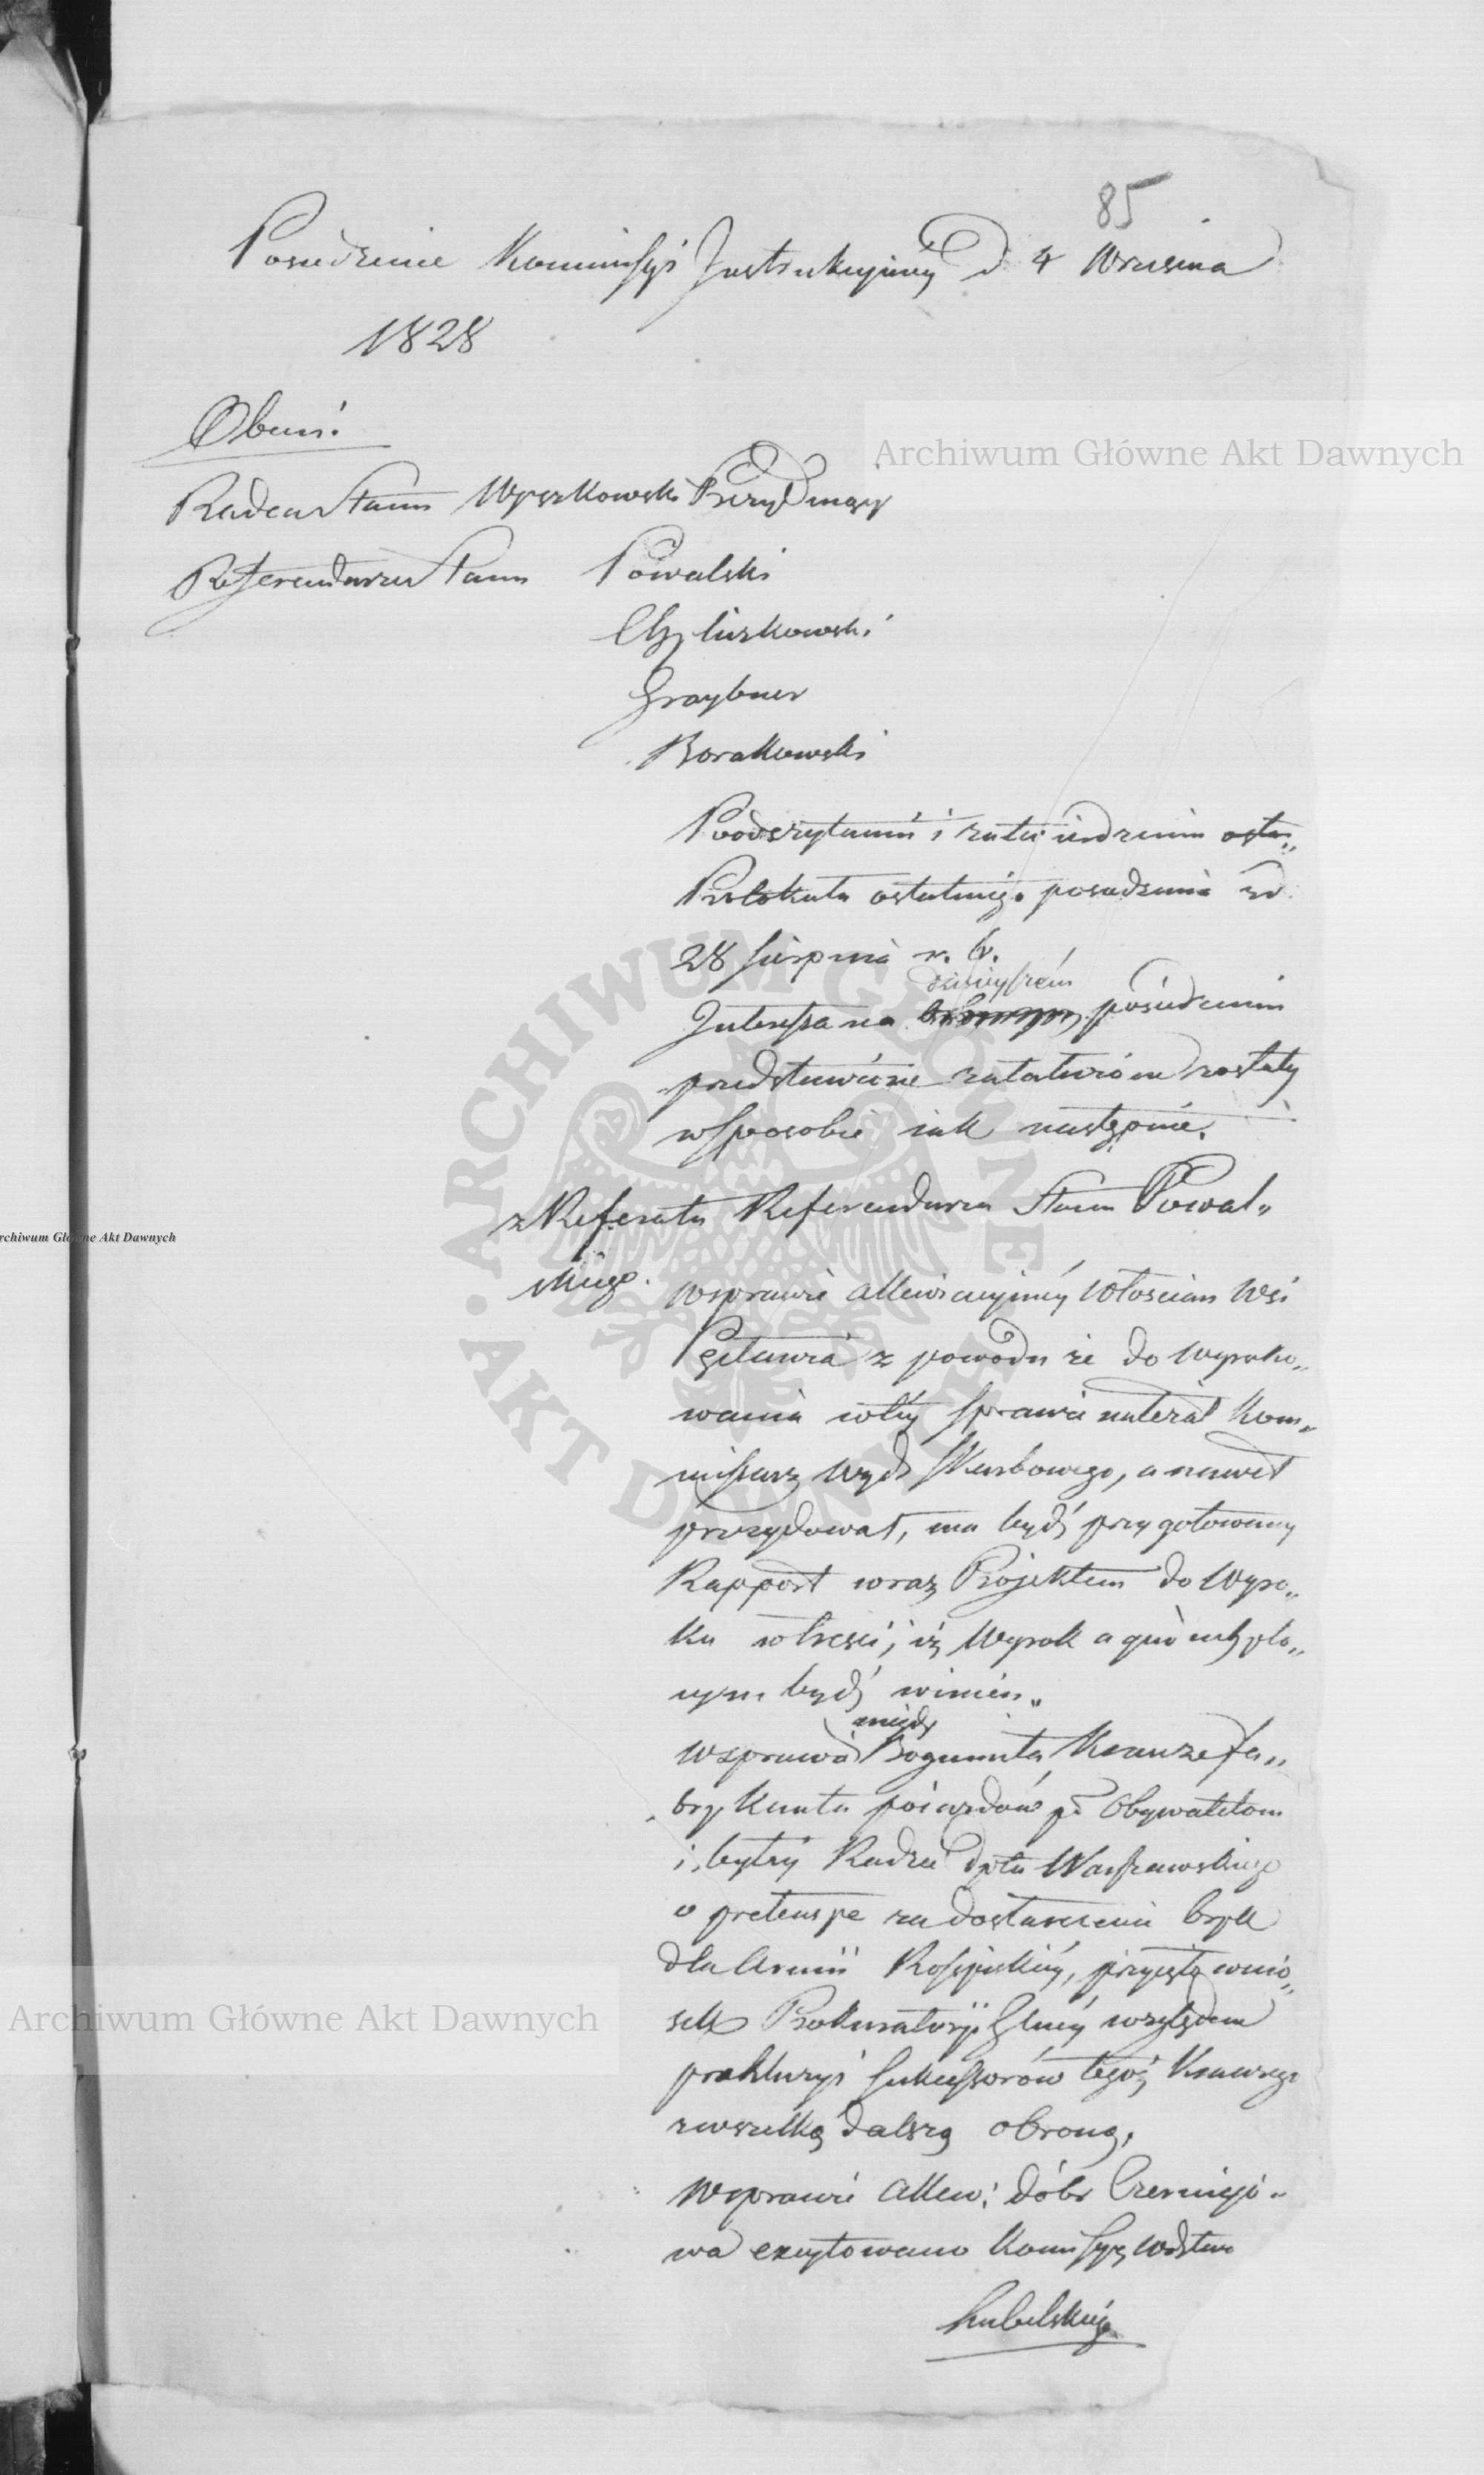 85
Posiedzenie Kommissyi Instrukcyiney D 4 Wrzesnia
1828
Obecni:
Radca Stanu Wyszkowski Prezydujący
Referendarze Stanu Powalski
Graybner
Borakowski
Po odczytaniu i zatwierdzeniu osta„
Protokułu ostatniego posiedzenia z d.
28 Sierpnia r. b.
dzisieyszem
Interessa na posiedzeniu
przedstawione załatwione zostały
w sposobie iak następuie.
z Referatu Referendarza Stanu Powal„
skiego.
W sprawie allewiacyiney Włoscian Wsi
z powodu że do wyroko„
wania w tey sprawie należał Kom„
missarz Wydz Skarbowego, a nawet
prezydował, ma bydź przygotowany
Rapport wraz Projektem do Wyro„
ku w tresci, iż Wyrok a quo uchylo„
nym bydź winien„
między
W sprawie Bogumiła Krauze fa„
brykanta poiazdów pko Obywatelom
i byłey Radzie Dptu Warszawskiego
o pretensye za dostarczenie bryk
dla Armii Rossyiskiey, przyięto wnio„
sek Prokuratoryi Glney względem
prekluzyi Sukcessorów tegoż Krauzego
z wszelką dalszą obroną.
W sprawie Allew: dóbr Czerniejo„
wa excytowano Kommissyę Wdztwa
Lubelskiego
Archiwum Główne Akt Dawnych
rchiwum Główne Akt Dawnych
Archiwum Główne Akt Dawnych
ARCHIWUM GŁÓWNE AKT DAWNYCH